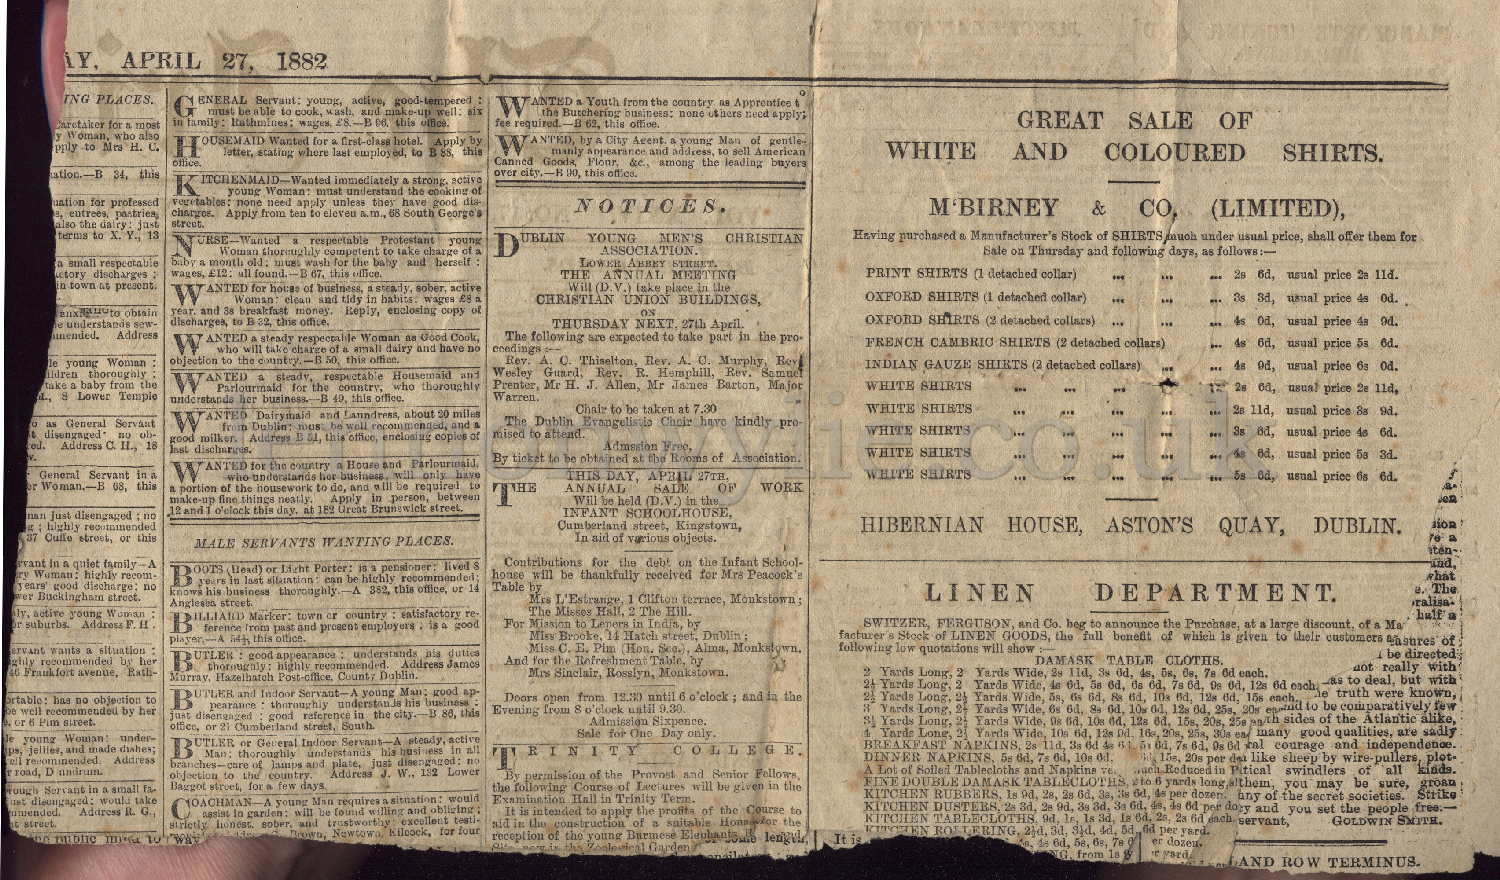 AY, APRIL 27, 1882
ING PLACES.
caretaker for a most
y Woman, who also
pply to Mrs H. C.
uation.—B 34, this
uation for professed
s, entrees, pastries,
also the dairy: just
terms to X. Y., 13
a small respectable
actory discharges;
in town at present.
to obtain
e understands sew-
mmended. Address
le young Woman:
ildren thoroughly:
take a baby from the
8 Lower Temple
o as General Servant
t disengaged: no ob-
ed. Address C. H., 18
General Servant in a
er Woman.—B 68, this
man just disengaged; no
g; highly recommended
37 Cuffe street, or this
rvant in a quiet family—A
ry Woman: highly recom-
years' good discharge; no
wer Buckingham street.
ly, active young Woman:
or suburbs. Address F. H.
servant wants a situation:
ighly recommended by her
46 Frankfort avenue, Rath-
ortable: has no objection to
be well recommended by her
e, or 6 Pim street.
le young Woman: under-
ups, jellies, and made dishes;
ell recommended. Address
r road, D undrum.
rough Servant in a small fa-
just disengaged: would take
mmended. Address R. G.,
nt street.
public mind to
GENERAL Servant: young, active, good-tempered:
must be able to cook, wash, and make-up well: six
in family: Rathmines: wages, £8.—B 66, this office.
HOUSEMAID Wanted for a first-class hotel. Apply by
letter, stating where last employed, to B 88, this
office.
KITCHENMAID—Wanted immediately a strong, active
young Woman: must understand the cooking of
vegetables: none need apply unless they have good dis-
charges. Apply from ten to eleven a.m., 68 South George's
street.
NURSE—Wanted a respectable Protestant young
Woman thoroughly competent to take charge of a
baby a month old: must wash for the baby and herself:
wages, £12: all found.—B 67, this office.
WANTED for house of business, a steady, sober, active
Woman: clean and tidy in habits: wages £8 a
year, and 3s breakfast money. Reply, enclosing copy of
discharges, to B 32, this office.
WANTED a steady respectable Woman as Good Cook,
who will take charge of a small dairy and have no
objection to the country.—B 50, this office.
WANTED a steady, respectable Housemaid and
Parlourmaid for the country, who thoroughly
understands her business.—B 49, this office.
WANTED Dairymaid and Laundress, about 20 miles
from Dublin: must be well recommended, and a
good milker. Address B 51, this office, enclosing copies of
last discharges.
WANTED for the country a House and Parlourmaid,
who understands her business, will only have
a portion of the housework to do, and will be required to
make-up fine things neatly. Apply in person, between
12 and 1 o'clock this day, at 182 Great Brunswick street.
MALE SERVANTS WANTING PLACES.
BOOTS (Head) or Light Porter: is a pensioner: lived 8
years in last situation: can be highly recommended;
knows his business thoroughly.—A 382, this office, or 14
Anglesea street.
BILLIARD Marker: town or country: satisfactory re-
ference from past and present employers: is a good
player.—A 54½, this office.
BUTLER: good appearance: understands his duties
thoroughly: highly recommended. Address James
Murray, Hazelhatch Post-office, County Dublin.
BUTLER and Indoor Servant—A young Man; good ap-
pearance: thoroughly understands his business:
just disengaged: good reference in the city.—B 86, this
office, or 21 Cumberland street, South.
BUTLER or General Indoor Servant—A steady, active
Man: thoroughly understands his business in all
branches—care of lamps and plate, just disengaged: no
objection to the country. Address J. W., 132 Lower
Baggot street, for a few days.
COACHMAN—A young Man requires a situation: would
assist in garden: will be found willing and obliging;
strictly honest, sober, and trustworthy: excellent testi-
Brown, Newtown, Kilcock, for four
way
WANTED a Youth from the country as Apprentice to
the Butchering business: none others need apply;
fee required.—B 62, this office.
WANTED, by a City Agent, a young Man of gentle-
manly appearance and address, to sell American
Canned Goods, Flour, &c., among the leading buyers
over city.—B 90, this office.
NOTICES.
DUBLIN YOUNG MEN'S CHRISTIAN
ASSOCIATION.
LOWER ABBEY STREET.
THE ANNUAL MEETING
Will (D.V.) take place in the
CHRISTIAN UNION BUILDINGS,
ON
THURSDAY NEXT, 27th April.
The following are expected to take part in the pro-
ceedings:—
Rev. A. C. Thiselton, Rev. A. C. Murphy, Rev
Wesley Guard, Rev. R. Hemphill, Rev. Samuel
Prenter, Mr H. J. Allen, Mr James Barton, Major
Warren.
Chair to be taken at 7.30
The Dublin Evangelistic Choir have kindly pro-
mised to attend.
Admssion Free,
By ticket to be obtained at the Rooms of Association.
THIS DAY, APRIL 27TH.
THE ANNUAL SALE OF WORK
Will be held (D.V.) in the
INFANT SCHOOLHOUSE,
Cumberland street, Kingstown,
In aid of various objects.
Contributions for the debt on the Infant School-
house will be thankfully received for Mrs Peacock's
Table by
Mrs L'Estrange, 1 Clifton terrace, Monkstown;
The Misses Hall, 2 The Hill.
For Mission to Lepers in India, by
Miss Brooke, 14 Hatch street, Dublin;
Miss C. E. Pim (Hon. Sec.), Alma, Monkstown.
And for the Refreshment Table, by
Mrs Sinclair, Rosslyn, Monkstown.
Doors open from 12.30 until 6 o'clock; and in the
Evening from 8 o'clock until 9.30.
Admission Sixpence.
Sale for One Day only.
TRINITY COLLEGE.
By permission of the Provost and Senior Fellows,
the following Course of Lectures will be given in the
Examination Hall in Trinity Term.
It is intended to apply the profits of the Course to
aid in the construction of a suitable House for the
reception of the young Burmese Elephants
now in the Zoological Gardens
some length,
GREAT SALE OF
WHITE AND COLOURED SHIRTS.
M'BIRNEY & CO, (LIMITED),
Having purchased a Manufacturer's Stock of SHIRTS much under usual price, shall offer them for
Sale on Thursday and following days, as follows:—
PRINT SHIRTS (1 detached collar) ... ... ... 2s 6d, usual price 2s 11d.
OXFORD SHIRTS (1 detached collar) ... ... ... 3s 3d, usual price 4s 0d.
OXFORD SHIRTS (2 detached collars) ... ... ... 4s 0d, usual price 4s 9d.
FRENCH CAMBRIC SHIRTS (2 detached collars) ... 4s 6d, usual price 5s 6d.
INDIAN GAUZE SHIRTS (2 detached collars) ... ... 4s 9d, usual price 6s 0d.
WHITE SHIRTS ... ... ... ... ... 2s 6d, usual price 2s 11d,
WHITE SHIRTS ... ... ... ... ... 2s 11d, usual price 3s 9d.
WHITE SHIRTS ... ... ... ... ... 3s 6d, usual price 4s 6d.
WHITE SHIRTS ... ... ... ... ... 4s 6d, usual price 5s 3d.
WHITE SHIRTS ... ... ... ... ... 5s 6d, usual price 6s 6d.
HIBERNIAN HOUSE, ASTON'S QUAY, DUBLIN.
LINEN DEPARTMENT.
SWITZER, FERGUSON, and Co. beg to announce the Purchase, at a large discount, of a Ma
facturer's Stock of LINEN GOODS, the full benefit of which is given to their customers
following low quotations will show:—
DAMASK TABLE CLOTHS.
2 Yards Long, 2 Yards Wide, 2s 11d, 3s 6d, 4s, 5s, 6s, 7s 6d each.
2½ Yards Long, 2 Yards Wide, 4s 6d, 5s 6d, 6s 6d, 7s 6d, 9s 6d, 12s 6d each
2½ Yards Long, 2½ Yards Wide, 5s, 6s 6d, 8s 6d, 10s 6d, 12s 6d, 15s each
3 Yards Long, 2½ Yards Wide, 6s 6d, 8s 6d, 10s 6d, 12s 6d, 25s, 20s ea
3½ Yards Long, 2½ Yards Wide, 9s 6d, 10s 6d, 12s 6d, 15s, 20s, 25s ea
4 Yards Long, 2½ Yards Wide, 10s 6d, 12s 9d, 16s, 20s, 25s, 30s ea
BREAKFAST NAPKINS, 2s 11d, 3s 6d 4s 6 5s 6d, 7s 6d, 9s 6d
DINNER NAPKINS, 5s 6d, 7s 6d, 10s 6d. 15s, 20s per do
A Lot of Soiled Tablecloths and Napkins ve much Reduced in P
FINE DOUBLE DAMASK TABLECLOTHS, 2 to 6 yards long
KITCHEN RUBBERS, 1s 9d, 2s, 2s 6d, 3s, 3s 6d, 4s per dozen.
KITCHEN DUSTERS, 2s 3d, 2s 9d, 3s 3d, 3s 6d, 4s, 4s 6d per do
KITCHEN TABLECLOTHS, 9d, 1s, 1s 3d, 1s 6d, 2s, 2s 6d each
KITCHEN ROLLERING, 2½d, 3d, 3½d, 4d, 5d, 6d per yard.
4s 6d, 5s, 6s, 7s 6 er dozen.
from 1s 9 r yard.
It is
a-
en
sion
e a
ten-
and,
what
e. The
ralisa-
half a
easures of
be directed
not really with
as to deal, but with
he truth were known,
nd to be comparatively few
th sides of the Atlantic alike,
many good qualities, are sadly
ral courage and independence.
like sheep by wire-pullers, plot-
tical swindlers of all kinds.
them, you may be sure, groan
ny of the secret societies. Strike
y and you set the people free:—
servant, GOLDWIN SMITH.
LAND ROW TERMINUS.